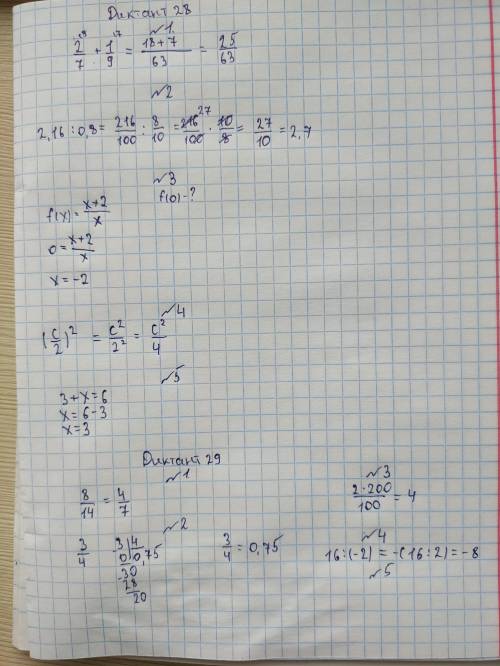 Диктант 28
№1
2/7 + 1/9 = (18+7)/63 = 25/63
№2
2,16 : 0,8 = 216/100 : 8/10 = 216/100 · 10/8 = 27/10 = 2,7
№3
f(x) = (x+2)/x   f(0) - ?
0 = (x+2)/x
x = -2
№4
(c/2)² = c²/2² = c²/4
№5
3 + x = 6
x = 6 - 3
x = 3
Диктант 29
№1
8/14 = 4/7
№2
3/4   3 | 4   3/4 = 0,75
0 | 0,75
-30
28
20
№3
(2·200)/100 = 4
№4
16 : (-2) = -(16 : 2) = -8
№5